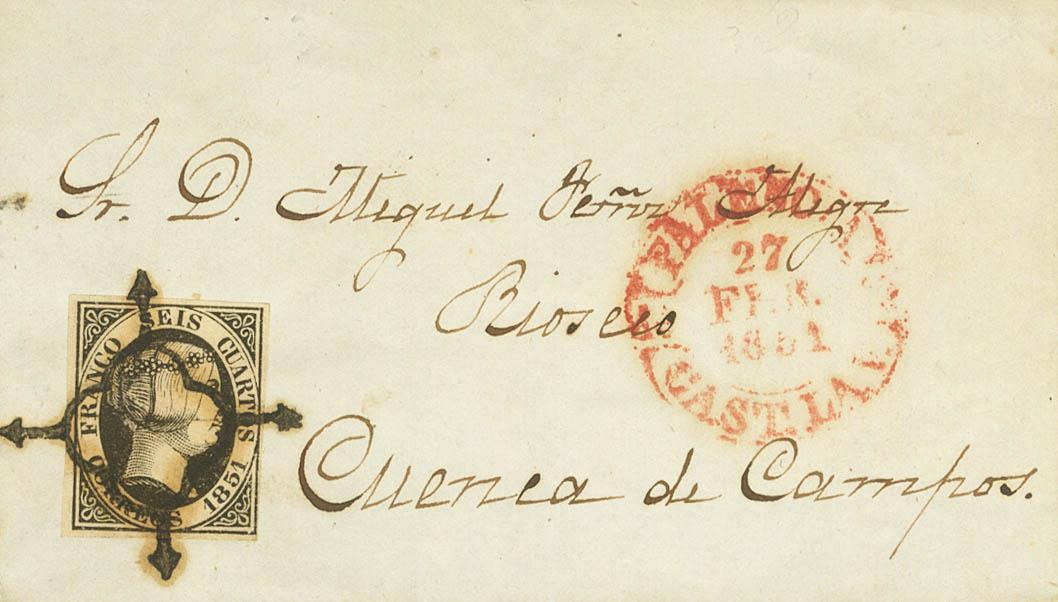 Sr. D. Miguel Ferñz Alegre
Rioseco
Cuenca de Campos.
FRANCO SEIS CUARTOS
CORREOS 1851
PALENCIA
27
FEB.
1851
CAST. LA V.